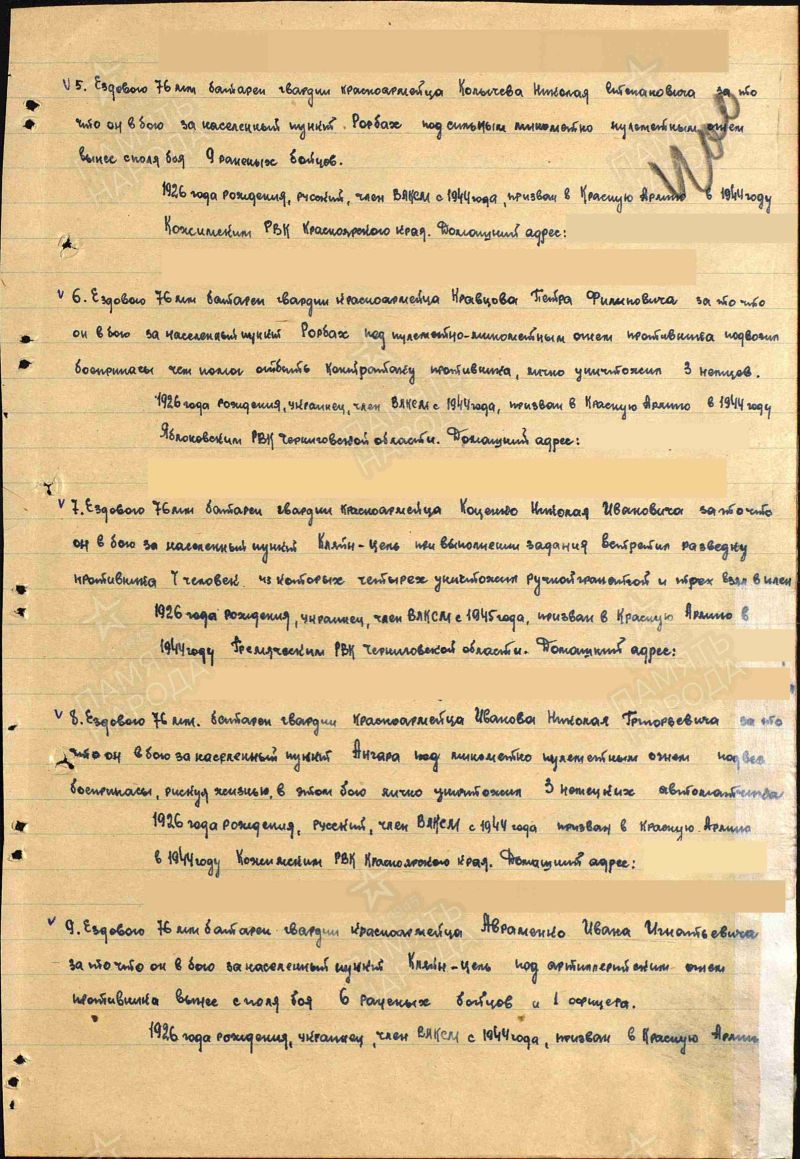 5. Ездового 76 мм батареи гвардии красноармейца Колычева Николая Степановича за то
что он в бою за населенный пункт Рорбах под сильным минометно пулеметным огнем
вынес с поля боя 9 раненых бойцов.
1926 года рождения, русский, член ВЛКСМ с 1944 года, призван в Красную Армию в 1944 году
РВК Красноярского края. Домашний адрес:
6. Ездового 76 мм батареи гвардии красноармейца Кравцова Петра Филиповича за то что
он в бою за населенный пункт Рорбах под пулеметно-минометным огнем противника подвозил
боеприпасы чем помог отбить контратаку противника, лично уничтожил 3 немцев.
1926 года рождения, украинец, член ВЛКСМ с 1944 года, призван в Красную Армию в 1944 году
Яблоновским РВК Черниговской области. Домашний адрес:
7. Ездового 76 мм батареи гвардии красноармейца Коценко Николая Ивановича за то что
он в бою за населенный пункт Кляйн-Цель при выполнении задания встретил разведку
противника 7 человек из которых четырех уничтожил ручной гранатой и трех взял в плен
1926 года рождения, украинец, член ВЛКСМ с 1945 года, призван в Красную Армию в
1944 году Гремяческим РВК Черниговской области. Домашний адрес:
8. Ездового 76 мм. батареи гвардии красноармейца Иванова Николая Григорьевича за то
что он в бою за населенный пункт Ангара под минометно пулеметным огнем подвез
боеприпасы, рискуя жизнью, в этом бою лично уничтожил 3 немецких автоматчика
1926 года рождения, русский, член ВЛКСМ с 1944 года призван в Красную Армию
в 1944 году РВК Красноярского края. Домашний адрес:
9. Ездового 76 мм батареи гвардии красноармейца Авраменко Ивана Игнатьевича
за то что он в бою за населенный пункт Кляйн-Цель под артиллерийским огнем
противника вынес с поля боя 6 раненых бойцов и 1 офицера.
1926 года рождения, украинец, член ВЛКСМ с 1944 года, призван в Красную Армию
ПАМЯТЬ
НАРОДА